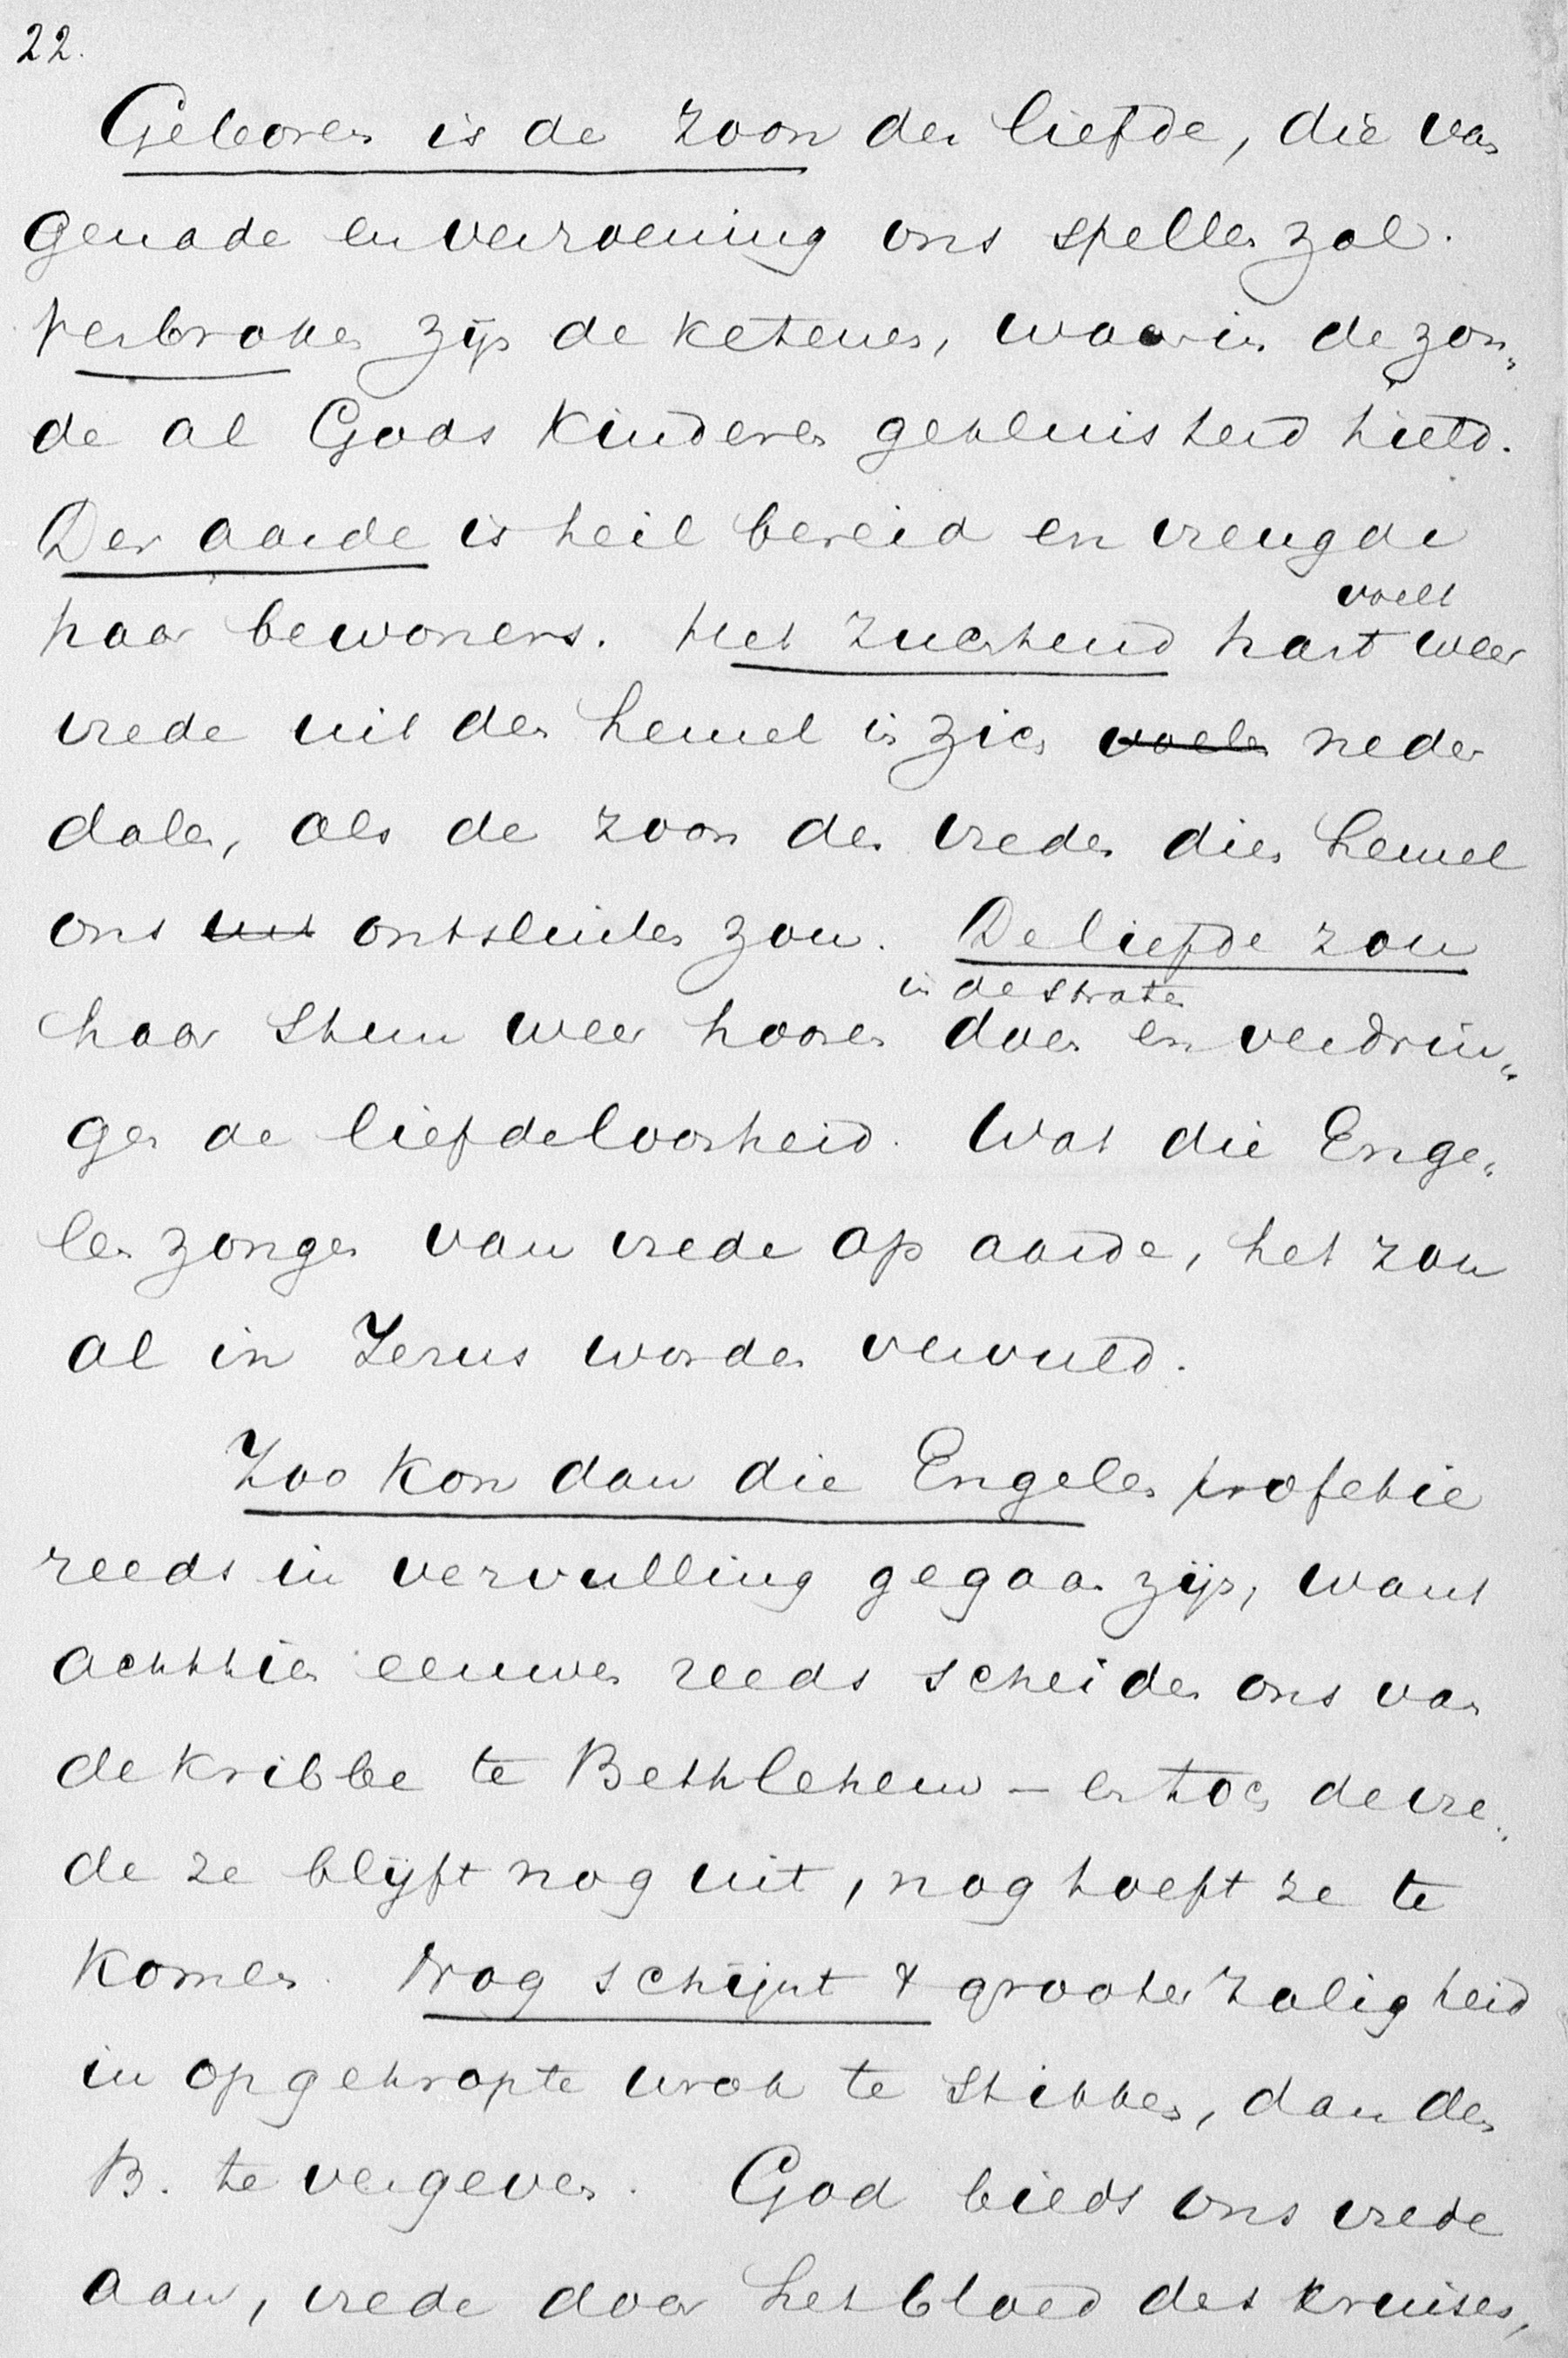 22.
Geboren is de zoon der liefde, die van
genade en verzoening ons spellen zal.
Verbroken zijn de ketenen, waarin de zon„
de al Gods kinderen gekluisterd hield.
Der aarde is heil bereid en vreugde
voelt
haar bewoners. Het zuchtend hart weer
vrede uit den hemel in zich voelen neder
dalen, als de zoon des vredes dien hemel
ons uit ontsluiten zou. De liefde zou
in de straten
haar stem weer hooren doen en verdrin„
gen de liefdeloosheid. Wat die Enge„
len zongen van vrede op aarde, het zou
al in Jezus worden vervuld.
Zoo kon dan die Engelen profetie
reeds in vervulling gegaan zijn, want
achttien eeuwen reeds scheiden ons van
de kribbe te Bethlehem – en toch de vre„
de ze blijft nog uit, nog hoeft ze te
komen. Nog schijnt & grooter zaligheid
in opgekropte wrok te stikken, dan den
B. te vergeven. God biedt ons vrede
aan, vrede door het bloed des kruises,